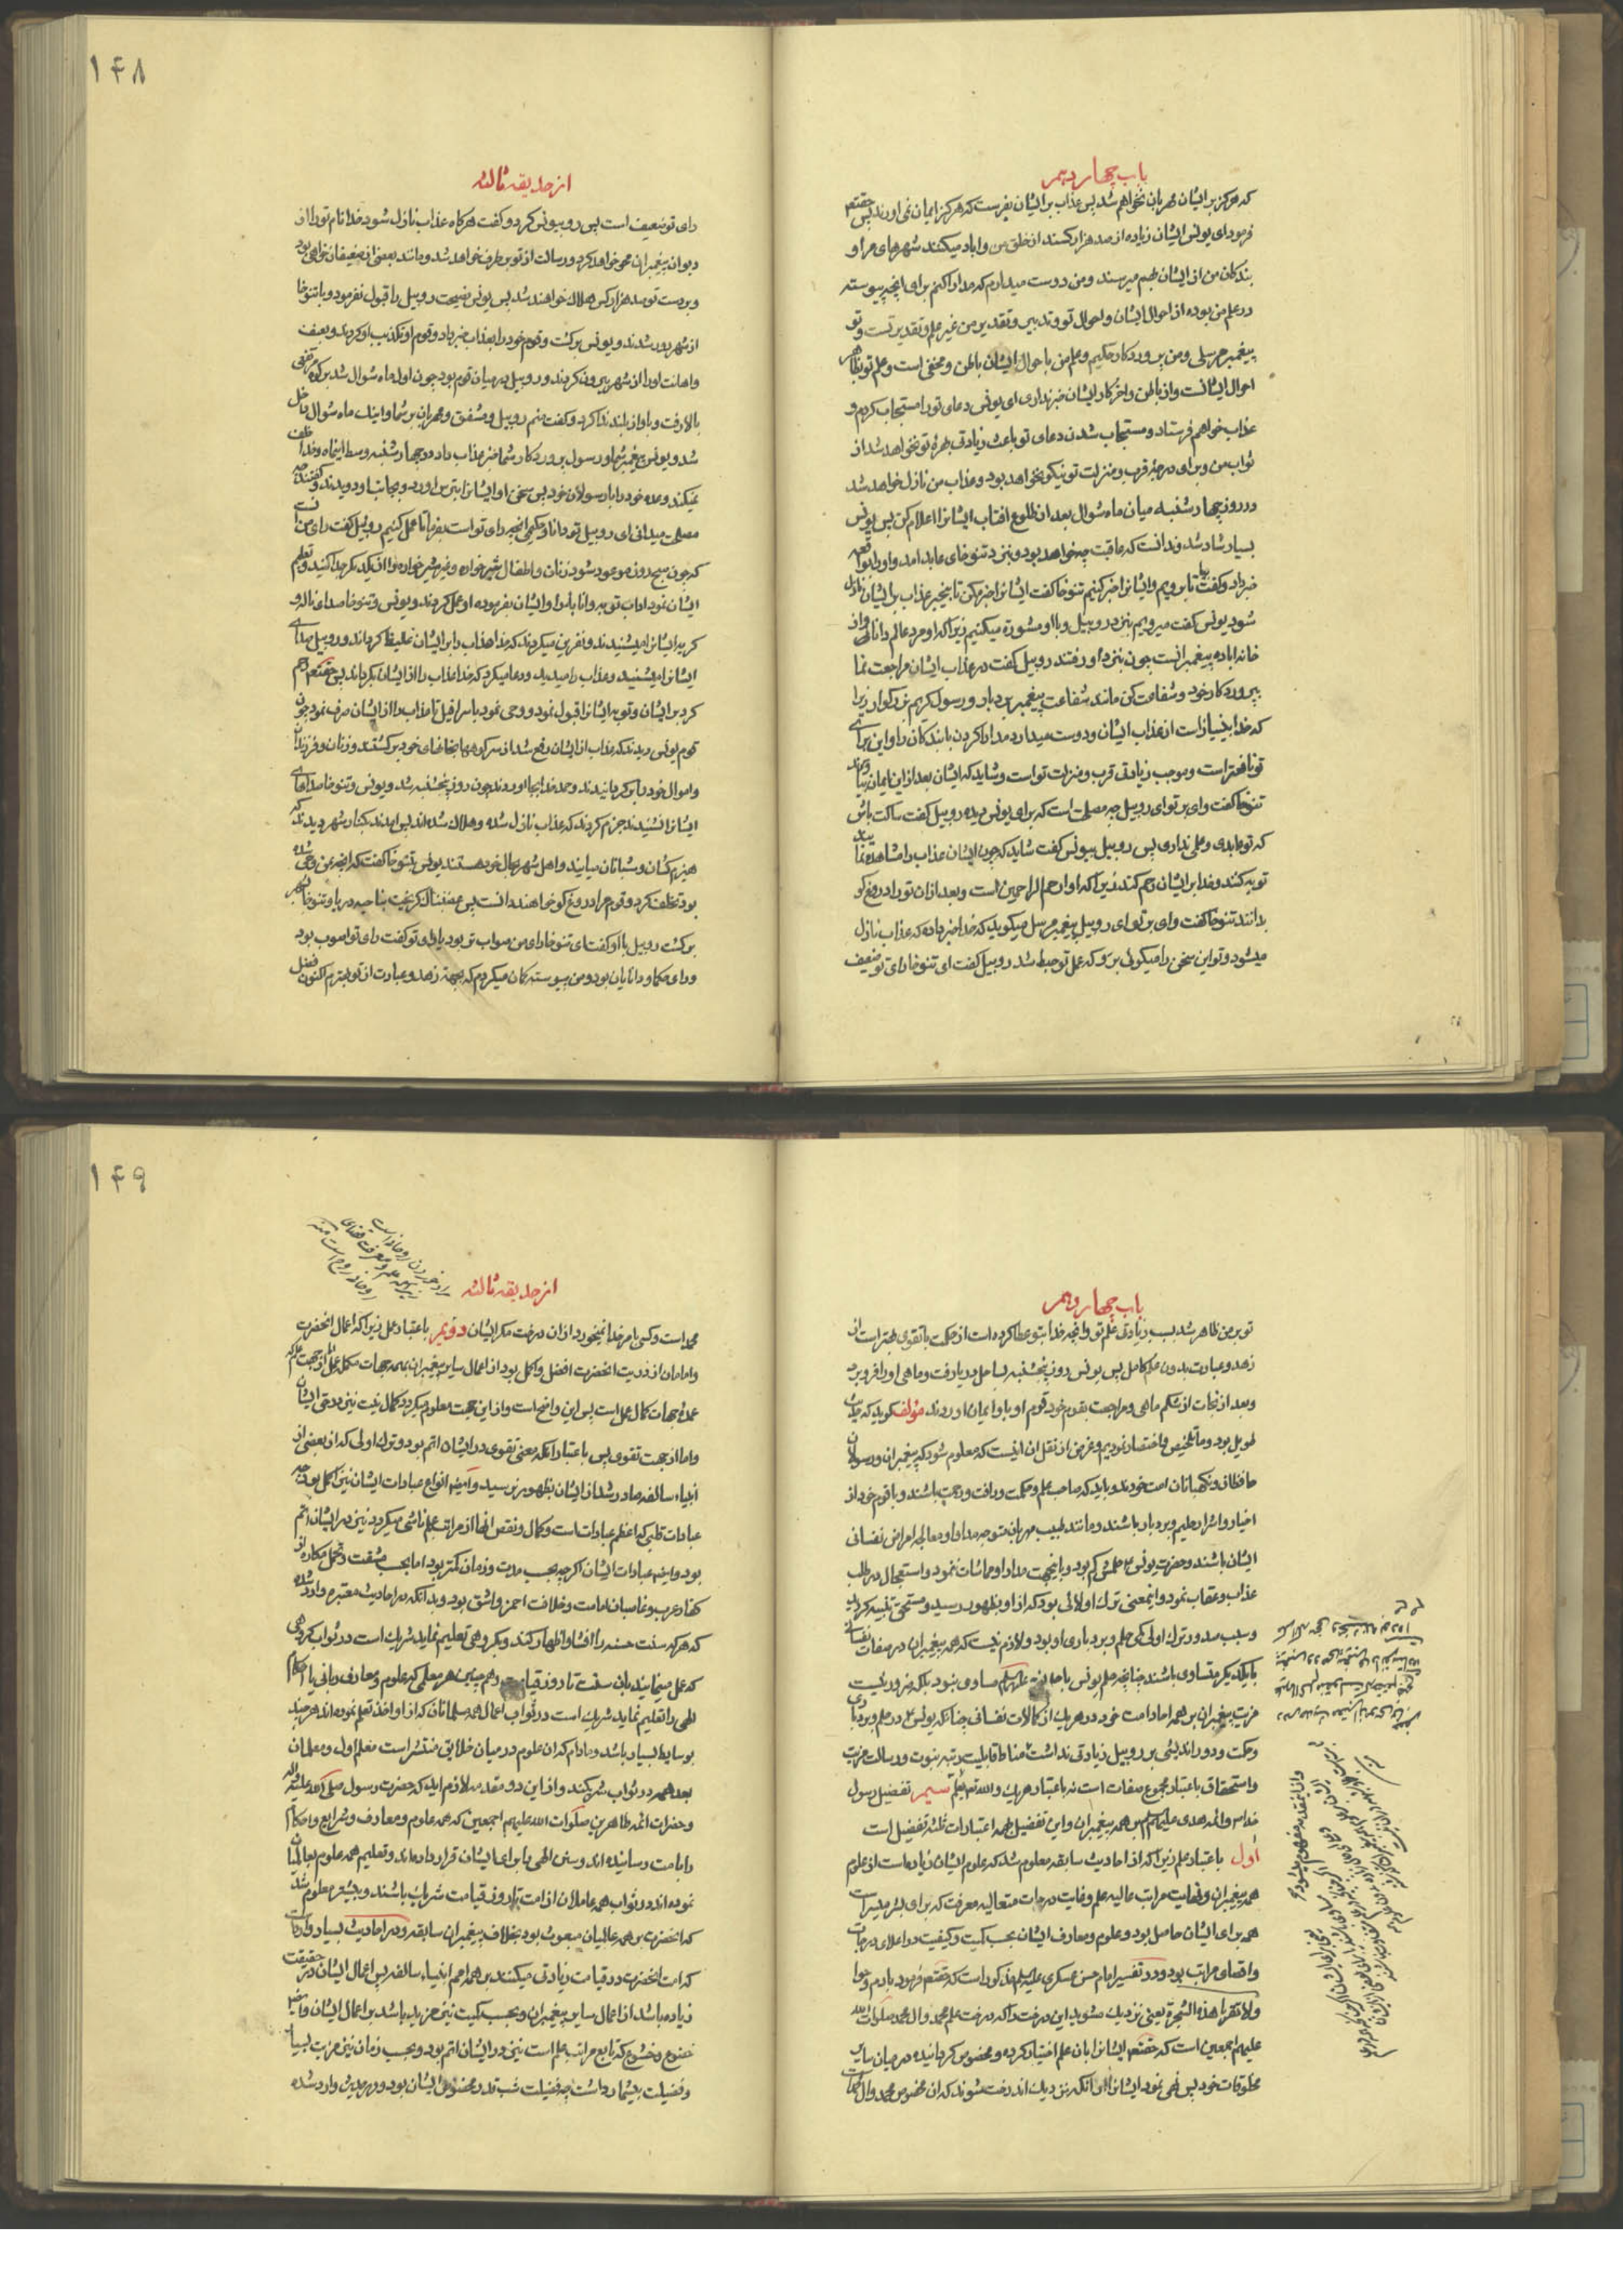 ۱۴۸
باب چهاردهم
که هرکز بر ایشان مهربان نخواهم شد پس عذاب بر ایشان بفرست که هرکز ایمان نمی اورند پس حقتعم
فرمود ای یونس ایشان زیاده از صد هزار کسند از خلق من و اباد میکنند شهرهای مرا و
بندکان من از ایشان بهم میرسند و من دوست میدارم که مدارا کنم برای انچه پیوسته
در علم من بوده از احوال ایشان و احوال تو و تدبیر و تقدیر من غیر علم و تقدیر تست و تو
پیغمبر مرسلی و من پروردکار حکیم و علم من باحوال ایشان باطن و مخفی است و علم تو بظاهر
احوال ایشانست و از باطن و اخر کار ایشان خبر نداری ای یونس دعای تو را مستجاب کردم و
عذاب خواهم فرستاد و مستجاب شدن دعای تو باعث زیادتی بهرهٔ تو نخواهد شد از
ثواب من و برای درجهٔ قرب و منزلت تو نیکو نخواهد بود و عذاب من نازل خواهد شد
در روز چهارشنبه میان ماه شوال بعد از طلوع افتاب ایشانرا اعلام کن پس یونس
بسیار شاد شد و ندانست که عاقبت چه خواهد بود و بنزد تنوخای عابد امد و او را بواقعه
خبر داد و کفت بیا تا برویم و ایشانرا خبر کنیم تنوخا کفت ایشانرا خبر مکن تا بیخبر عذاب بر ایشان نازل
شود یونس کفت میرویم بنزد روبیل و با او مشورة میکنیم زیرا که او مرد عالم دانائی و از
خانه اباده پیغمبرانست چون بنزد او رفتند روبیل کفت در عذاب ایشان مراجعت نما
بپروردکار خود و شفاعت کن مانند شفاعت پیغمبر بردبار و رسول کریم بزرکوار زیرا
که خدا بینیاز است از عذاب ایشان و دوست میدارد مدارا کردن با بندکان را و این برای
تو نافعتر است و موجب زیادتی قرب و منزلت تو است و شاید که ایشان بعد از این ایمان بیاورند
تنوخا کفت وای بر تو ای روبیل چه مصلحت است که برای یونس دیده روبیل کفت ساکت باش
که تو عابدی و علمی نداری پس روبیل بیونس کفت شاید که چون ایشان عذاب را مشاهده نمایند
توبه کنند و خدا بر ایشان رحم کند زیرا که او ارحم الراحمین است و بعد از ان تو را دروغ کو
بدانند تنوخا کفت وای بر تو ای روبیل پیغمبر مرسل میکوید که خدا خبر داده که عذاب نازل
میشود و تو این سخن را میکوئی برو که عمل تو حبط شد روبیل کفت ای تنوخا رای تو ضعیف
از حدیقه ثالثه
رای تو ضعیف است پس رو بیونس کرد و کفت هرکاه عذاب نازل شود خدا نام تو را از
دیوان پیغمبران محو خواهد کرد و رسالت از تو برطرف خواهد شد و مانند بعضی از ضعیفان خواهی بود
و بر دست تو صد هزار کس هلاک خواهند شد پس یونس نصیحت روبیل را قبول نفرمود و با تنوخا
از شهر بدر شدند و یونس برکشت و قوم خود را بعذاب خبر داد و قوم او تکذیب او کردند و بعنف
و اهانت او را از شهر بیرون کردند و روبیل در میان قوم بود چون اول ماه شوال شد بر کوه مرتفعی
بالا رفت و باواز بلند ندا کرد و کفت منم روبیل و مشفق و مهربان بر شما و اینک ماه شوال داخل
شد و یونس پیغمبر شما و رسول پروردکار شما خبر عذاب داد در چهارشنبه وسط این ماه و خدا خلف
نمیکند وعده خود را با رسولان خود پس سخن او ایشانرا بترس اورد و بجانب او دویدند و کفتند چه
مصلحت میدانی ای روبیل تو دانا و حکیمی انچه رای تو است بفرما تا عمل کنیم روبیل کفت رای من انست
که چون صبح روز موعود شود زنان و اطفال شیر خواره و غیر شیر خواره را از یکدیکر جدا کنید و تعلیم
ایشان نمود اداب توبه و انابه را و ایشان بفرموده او عمل کردند و یونس و تنوخا صدای ناله و
کریه ایشانرا میشنیدند و نفرین میکردند که خدا عذاب را بر ایشان غلیظ کرداند و روبیل صدای
ایشانرا میشنید و عذاب را میدید و دعا میکرد که خدا عذاب را از ایشان بکرداند پس حقتعم رحم
کرد بر ایشان و توبه ایشانرا قبول نمود و وحی نمود باسرافیل تا عذاب را از ایشان صرف نمود چون
قوم یونس دیدند که عذاب از ایشان رفع شد از سر کوهها بخانهای خود برکشتند و زنان و فرزندان
و اموال خود را بر کردانیدند و حمد خدا بجا اوردند چون روز پنجشنبه شد و یونس و تنوخا صداهای
ایشانرا نشنیدند جزم کردند که عذاب نازل شده و هلاک شده اند پس امدند بکنار شهر دیدند که
هیزم کشان و شبانان میایند و اهل شهر بحال خود هستند یونس بتنوخا کفت که انچه بمن وحی شده
بود تخلف کرد و قوم مرا دروغ کو خواهند دانست پس غضبناک کریخت بناحیه دریا و تنوخا بشهر
برکشت روبیل با او کفت ای تنوخا رای من صواب تر بود یا رای تو کفت رای تو اصوب بود
و رای حکما و دانایان بود و من پیوسته کمان میکردم که بجهة زهد و عبادت از تو بهترم اکنون فضل
۱۴۹
باب چهاردهم
تو بر من ظاهر شد بسبب زیادتی علم تو و انچه خدا بتو عطا کرده است از حکمت با تقوی بهتر است از
زهد و عبادت بدون علم کامل پس یونس روز پنجشنبه بساحل دریا رفت و ماهی او را فرو برد
و بعد از نجات از شکم ماهی و مراجعت بقوم خود قوم او باو ایمان اوردند مؤلف کوید که حدیث
طویل بود و ما تلخیص و اختصار نمودیم و غرض از نقل ان اینست که معلوم شود که پیغمبران و رسولان
حافظان و نکهبانان امت خودند و باید که صاحب علم و حکمت و رافت و رحمت باشند و با قوم خود از
اخیار و اشرار حلیم و بردبار باشند و مانند طبیب مهربان متوجه مداوا و معالجه امراض نفسانی
ایشان باشند و حضرت یونس ع حلمش کم بود و باینجهت مدارا و مماشات ننمود و استعجال در طلب
عذاب و عقاب نمود و اینمعنی ترک اولائی بود که از او بظهور رسید و مستحق تنبیه کردید
و سبب صدور ترک اولی کمی حلم و بردباری او بود و لازم نیست که همه پیغمبران در صفات نفسانی
با یکدیکر متساوی باشند چنانچه حلم یونس با حلم علیهم السلام مساوی نبود بلکه ضرور نیست
مزیت پیغمبران بر همه احاد امت خود در هر یک از کمالات نفسانی چنانکه یونس ع در حلم و بردباری
و حکمت و دوراندیشی بر روبیل زیادتی نداشت مناط قابلیت رتبه نبوت و رسالت مزیت
و استحقاق باعتبار مجموع صفات است نه باعتبار هر یک و الله تعم یعلم سیم تفضیل رسول
خدا ص و ائمه هدی علیهم السلم بر همه پیغمبران و این تفضیل بهمه اعتبارات ثلثه تفضیل است
اول باعتبار علم زیرا که از احادیث سابقه معلوم شد که علوم ایشان زیاده است از علوم
همه پیغمبران و نهایت مراتب عالیه علم و غایت درجات متعالیه معرفت که برای بشر میسر است
همه برای ایشان حاصل بود و علوم و معارف ایشان بحسب کمیت و کیفیت در اعلای درجات
و اقصای مراتب بود و در تفسیر امام حسن عسکری علیه السلم مذکور است که حقتعم فرمود بادم و حوا
ولا تقربا هذه الشجرة یعنی نزدیک مشوید این درخت را که درخت علم محمد و ال محمد صلوات الله
علیهم اجمعین است که حقتعم ایشانرا بان علم اختیار کرده و مخصوص کردانیده در میان سایر
مخلوقات خود پس نهی نمود ایشانرا از انکه نزدیک اندرخت شوند که ان مخصوص محمد و ال
از حدیقه ثالثه
محمد است و کسی بامر خدا نمیخورد از ان درخت مکر ایشان دویم باعتبار عمل زیرا که اعمال انحضرت
و امامان از ذریت انحضرت افضل و اکمل بود از اعمال سایر پیغمبران بهمه جهات مکمله عمل اما از جهت علم که
عمده جهات کمال عمل است پس این واضح است و از این جهت معلوم میکردد کمال نیت نیز در حق ایشان
و اما از جهت تقوی پس باعتبار انکه معنی تقوی در ایشان اتم بود و ترک اولی که از بعضی از
انبیاء سالفه صادر شد از ایشان بظهور نرسید و انواع عبادات ایشان نیز اکمل بود چه
عبادات قلبی که اعظم عبادات است و کمال و نقص انها از مراتب علم ناشی میکردد نیز در ایشان اتم
بود و ایضا عبادات ایشان اکرچه بحسب مدت و زمان کمتر بود اما بحسب مشقت و تحمل مکاره از
کفار عرب و غاصبان امامت و خلافت احمز و اشق بود و بدانکه در احادیث معتبره وارد شده
که هر که سنت حسنه را افشا و اظهار کند و بکروهی تعلیم نماید شریک است در ثواب کروهی
که عمل مینمایند بان سنت تا روز قیامت و هم چنین هر معلمی که علوم و معارف ربانی یا احکام
الهی را تعلیم نماید شریک است در ثواب اعمال همه مسلمانان که از او اخذ تعلم نموده اند هر چند
بوسایط بسیار باشد و مادام که ان علوم در میان خلایق منتشر است معلم اول و معلمان
بعد همه در ثواب شریکند و از این دو مقدمه لازم اید که حضرت رسول صلی الله علیه و اله
و حضرات ائمه طاهرین صلوات الله علیهم اجمعین که همه علوم و معارف و شرایع و احکام
را بامت رسانیده اند و سنن الهی را برای ایشان قرار داده اند و تعلیم همه علوم بعالمیان
نموده اند در ثواب همه عاملان از امت تا روز قیامت شریک باشند و بیشتر معلوم شد
که انحضرت بر همه عالمیان مبعوث بود بخلاف پیغمبران سابقه و در احادیث بسیار وارد است
که امت انحضرت در قیامت زیادتی میکنند بر همه امم انبیاء سالفه پس اعمال ایشان در حقیقت
زیاده باشد از اعمال سایر پیغمبران و بحسب کمیت نیز مزید باشد بر اعمال ایشان و ایضا
خضوع و خشوع که تابع مراتب علم است نیز در ایشان اتم بود و بحسب زمان نیز مزیت بسیار
و فضیلت بیشمار داشت چه فضیلت شب قدر مخصوص ایشان بود و در حدیث وارد شده